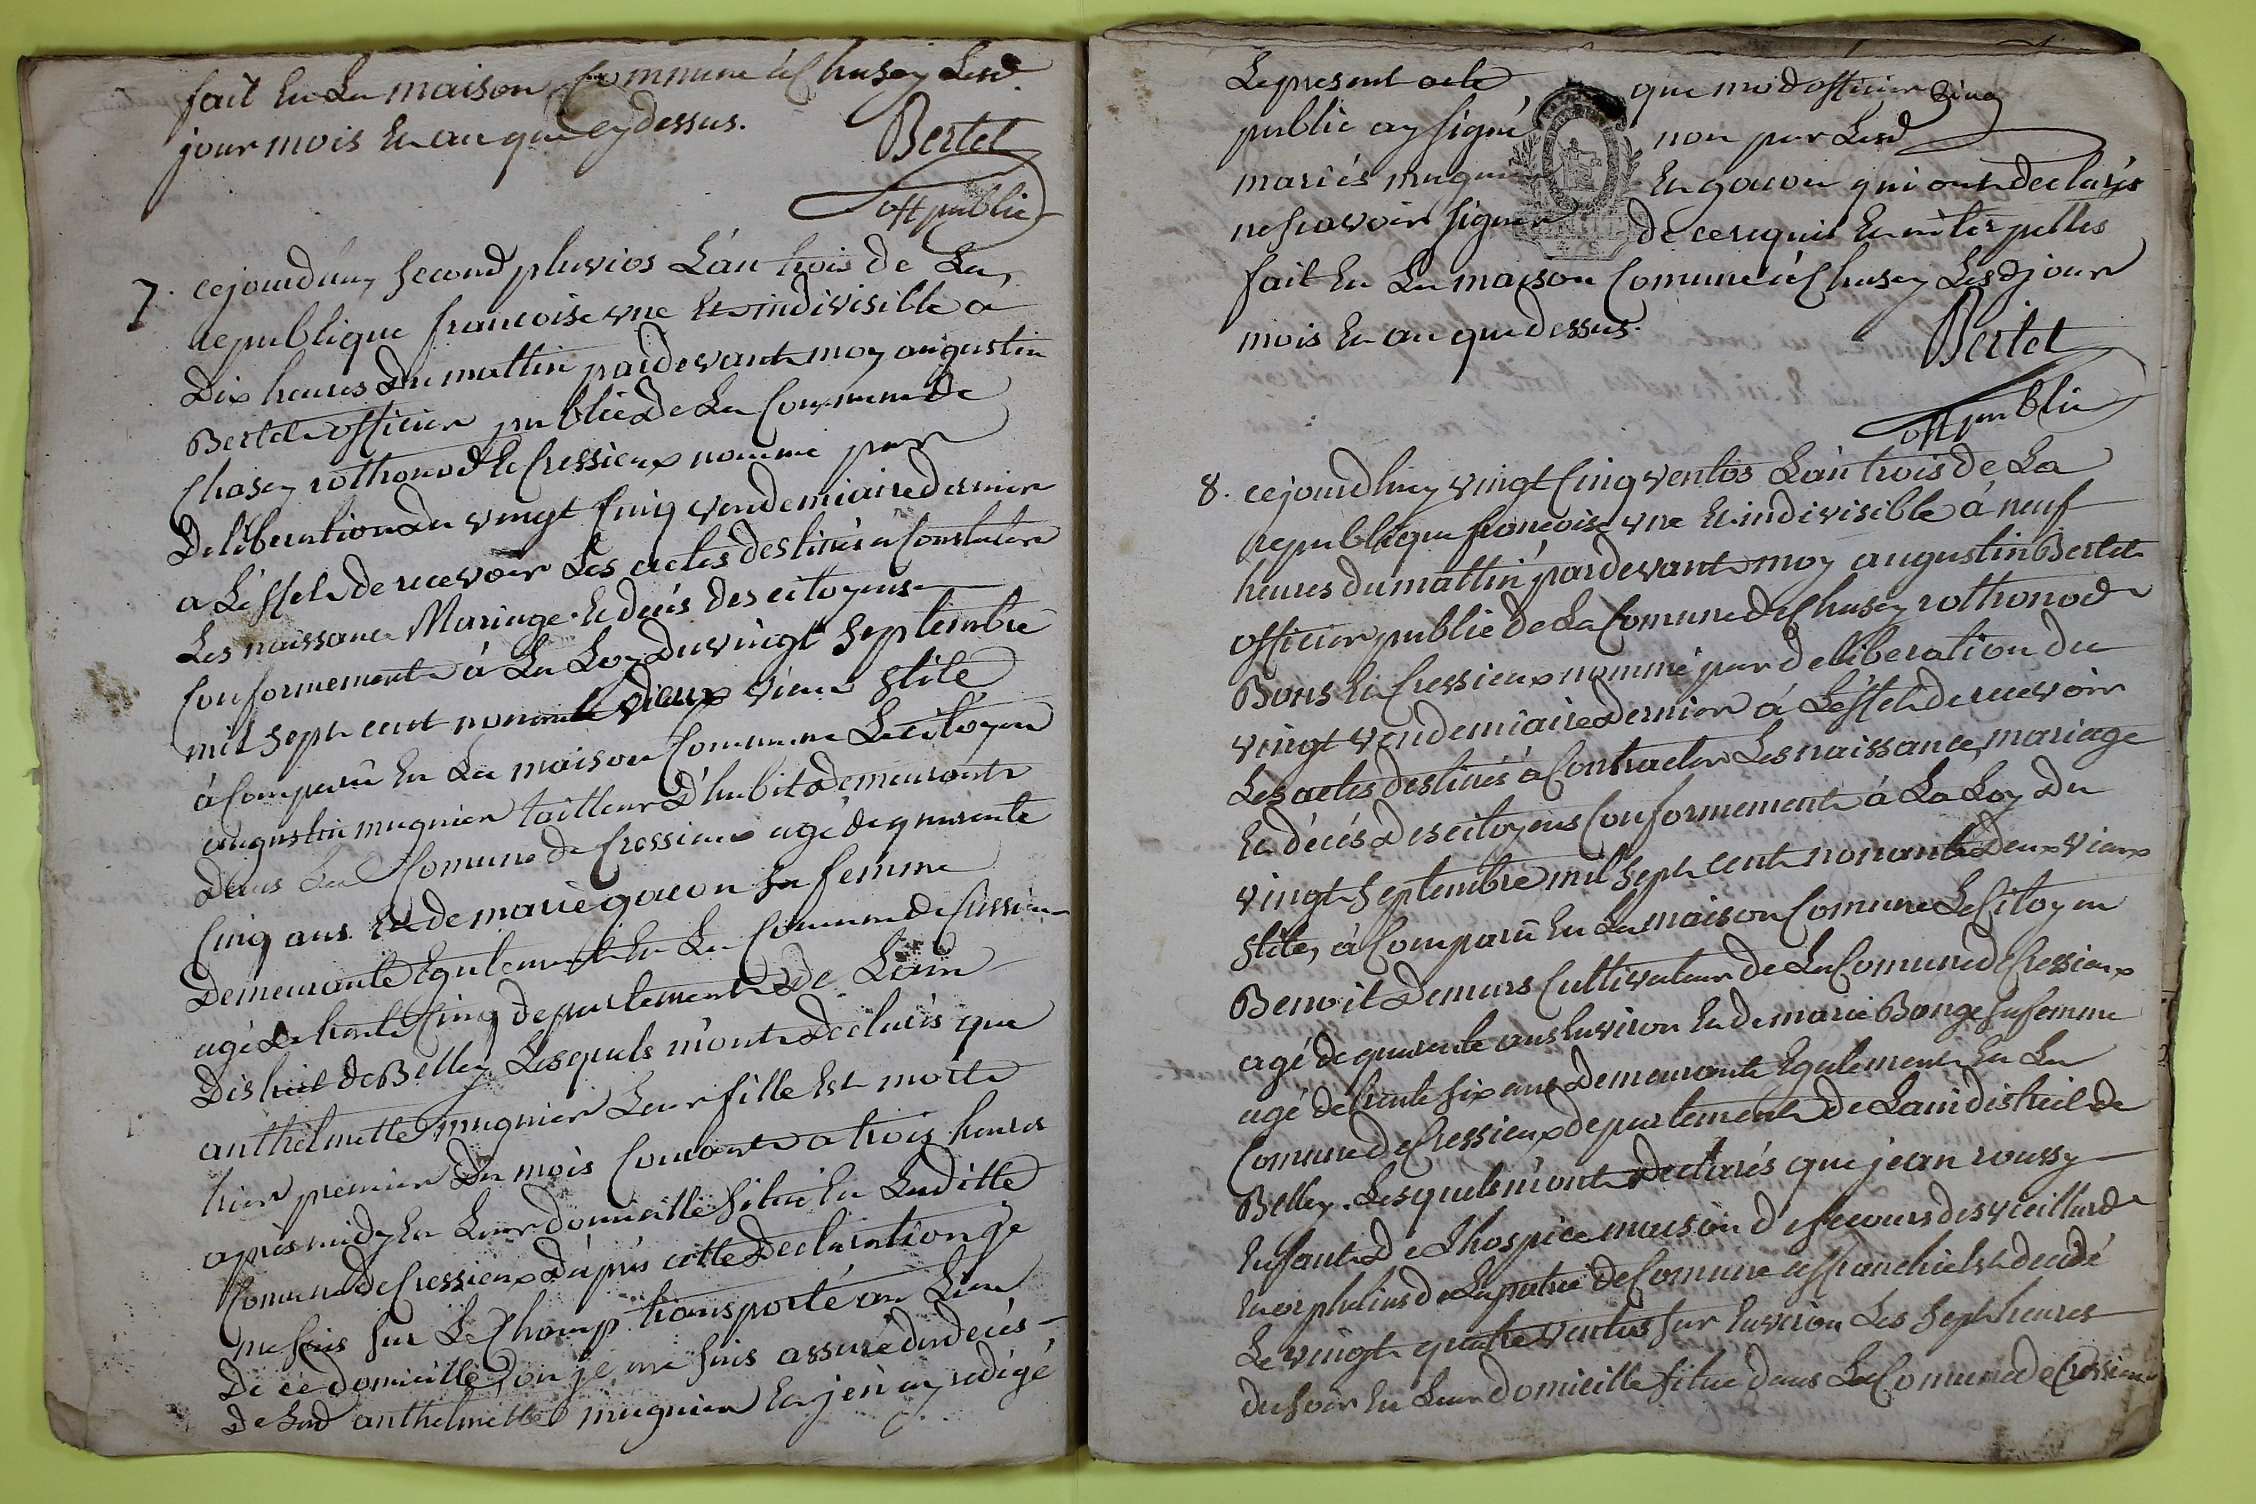 fait En La maison Commune à Chasey Lesd
jour mois En an que cy dessus.
Bertet
off public
7. cejourdhuy second pluvios L'an trois de La
republique francoise une Et indivisible à
Dix heures du mattin pardevant moy augustin
Bertet officier public de La Commune de
Chasey rothonod Et Cressieux nommé par
Deliberation du vingt Cinq vendemiaire dernier
a L'effet de recevoir Les actes destinés a Constater
Les naissance Mariage Et decés des citoyens
Conformement à La Loy du vingt septembre
mil sept cent nonante deux vieux stile
à Comparû En La maison Commune Le citoyen
augustin mugnier tailleur D'habit demeurant
Dans La Comune de Cressieux agé de quarente
Cinq ans Et de marie gacon sa femme
Demeurante Egalement En La Commune de Cressieux
agé de trente Cinq departement de L'ain
District de Belley Lesquels m'ont declarés que
anthelmette mugnier Leur fille Est morte
hier premier Du mois Courant a trois heures
apres midy En Leur domicille situé En Laditte
Comune de Cressieux D'après cette declaration je
me suis sur Le Champ transporté au Lieu
De ce domicille, ou je me suis assuré du decés
De Lad anthelmette mugnier Et j'en ay redigé
Le present acte que moid officier
public ay signé non par Lesd
mariés mugnier Et gacon qui ont declarés
ne scavoir signer de ce requis Et interpellés
fait En La maison Comune à Chasey Lesd jour
mois En an que dessus.
Bertet
off public
8. cejourdhuy vingt Cinq ventos L'an trois de La
republique francoise une Et indivisible à neuf
heures du mattin pardevant moy augustin Bertet
officier public de La Comune de Chasey rothonod
Bons Et Cressieux nommé par deliberation du
vingt vendemiaire dernier à L'effet de recevoir
Les actes destinés à Contracter Les naissance, mariage
Et décés Des citoyens Conformement à La Loy du
vingt septembre mil sept cent nonante deux vieux
stile, à Comparû En La maison Comune Le Citoyen
Benoit Demurs Cultivateur de La Comune de Cressieux
agé de quarente ans Environ Et de marie Bonge sa femme
agé de trente six ans demeurante Egalement En La
Comune de Cressieux departement de Lain district de
Belley. Lesquels m'ont declarés que jean roussy
Enfant de L'hospice maison de secours des vieillard
Et orphelins de La patrie de Comune affranchie Est decedé
Le vingt quatre ventos sur Environ Les sept heures
du soir En Leur domicille situé dans La Comune de Cressieux